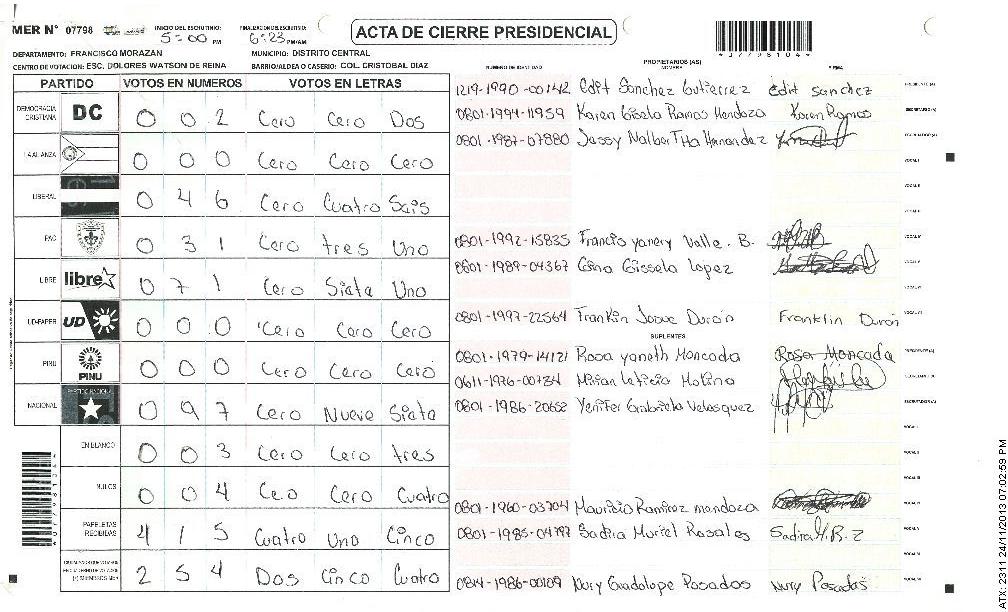 MER N° 07798 INICIO DEL ESCRUTINIO: 5:00 PM FINALIZACION DEL ESCRUTINIO: 6:23 PM/AM ACTA DE CIERRE PRESIDENCIAL
DEPARTAMENTO: FRANCISCO MORAZAN MUNICIPIO: DISTRITO CENTRAL
CENTRO DE VOTACION: ESC. DOLORES WATSON DE REINA BARRIO/ALDEA O CASERIO: COL. CRISTOBAL DIAZ
NUMERO DE IDENTIDAD PROPIETARIOS (AS) NOMBRE FIRMA
PARTIDO VOTOS EN NUMEROS VOTOS EN LETRAS
1219-1990-00142 Edit Sanchez Gutierrez edit sanchez PRESIDENTE (A)
DEMOCRACIA CRISTIANA DC 0 0 2 Cero Cero Dos
0801-1994-11959 Karen Gisela Ramos Mendoza Karen Ramos SECRETARIO (A)
0801-1987-07880 Jessy Nalber Tita Hernandez
LA ALIANZA 0 0 0 Cero Cero Cero
VOCAL I
LIBERAL 0 4 6 Cero Cuatro Sais
PAC 0 3 1 Cero tres Uno
0801-1992-15835 Francis yanery Valle. B.
0801-1989-04367 Gina Gissela Lopez
LIBRE libre 0 7 1 Cero Siata Uno
UD-FAPER UD 0 0 0 Cero Cero Cero
0801-1997-22564 Franklin Josue Durón Franklin Durón
SUPLENTES
PINU PINU 0 0 0 Cero Cero Cero
0801-1979-14121 Rosa yaneth Moncada Rosa Moncada PRESIDENTE (A)
0611-1976-00734 Mirian Leticia Molina
NACIONAL PARTIDO NACIONAL 0 9 7 Cero Nueve Siata
0801-1986-20652 Yenifer Gabriela Velasquez
EN BLANCO 0 0 3 Cero Cero tres
NULOS 0 0 4 Ceo Cero Cuatro
0801-1960-03704 Mauricio Ramirez mendoza
PAPELETAS RECIBIDAS 4 1 5 Cuatro Uno Cinco
0801-1985-04797 Sadira Muriel Rosales Sadira M.R.Z
2 5 4 Dos Cinco Cuatro
Nury Guadalope Posadas Nury Posadas
ATX-2311 24/11/2013 07:02:59 PM